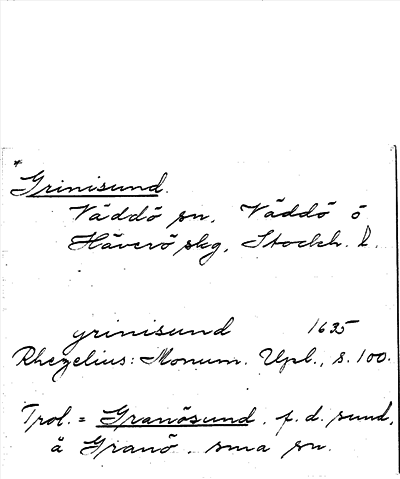 *
Grinisund.
Väddö sn, Väddö o
Häverö skg, Stockh. l.
grinisund 1635
Rhezelius: Monum. Upl., s. 100.
Trol. = Granösund, f.d. sund,
å Granö, sma sn.